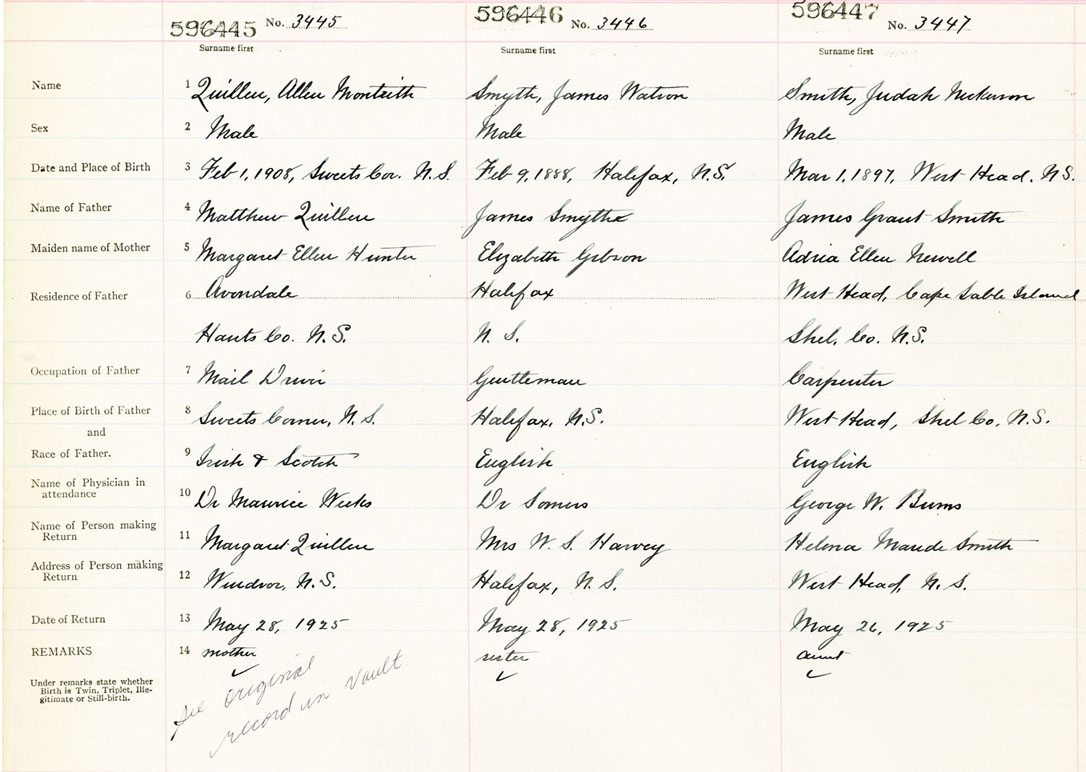 596445 No. 3445 596446 No. 3446 596447 No. 3447
Surname first Surname first Surname first
Name 1 Quillen, Allen Monteith Smyth, James Watson Smith, Judah Nickerson
Sex 2 Male Male Male
Date and Place of Birth 3 Feb 1, 1908, Sweets Cor. N.S. Feb 9, 1888, Halifax, N.S. Mar 1, 1897, West Head, N.S.
Name of Father 4 Matthew Quillen James Smythe James Grant Smith
Maiden name of Mother 5 Margaret Ellen Hunter Elizabeth Gibson Adria Ellen Newell
Residence of Father 6 Avondale Halifax West Head, Cape Sable Island
Hants Co. N.S. N. S. Shel. Co. N.S.
Occupation of Father 7 Mail Driver Gentleman Carpenter
Place of Birth of Father 8 Sweets Corner, N.S. Halifax, N.S. West Head, Shel Co. N.S.
and
Race of Father. 9 Irish & Scotch English English
Name of Physician in
attendance 10 Dr Maurice Weeks Dr Somers George W. Burns
Name of Person making
Return 11 Margaret Quillen Mrs W. S. Harvey Helena Maude Smith
Address of Person making
Return 12 Windsor, N.S. Halifax, N.S. West Head, N.S.
Date of Return 13 May 28, 1925 May 28, 1925 May 26, 1925
REMARKS 14 mother sister aunt
Under remarks state whether
Birth is Twin, Triplet, Ille-
gitimate or Still-birth.
See original
record in vault